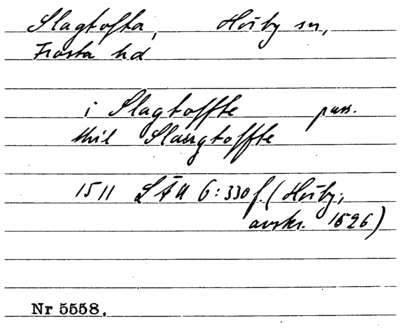 Slagtofta, Hörby sn,
Frosta hd
i Slagtoffte pass.
thil Slaugtoffte
1511 LÄU 6:330 f. (Hörby;
avskr. 1526)
Nr 5558.